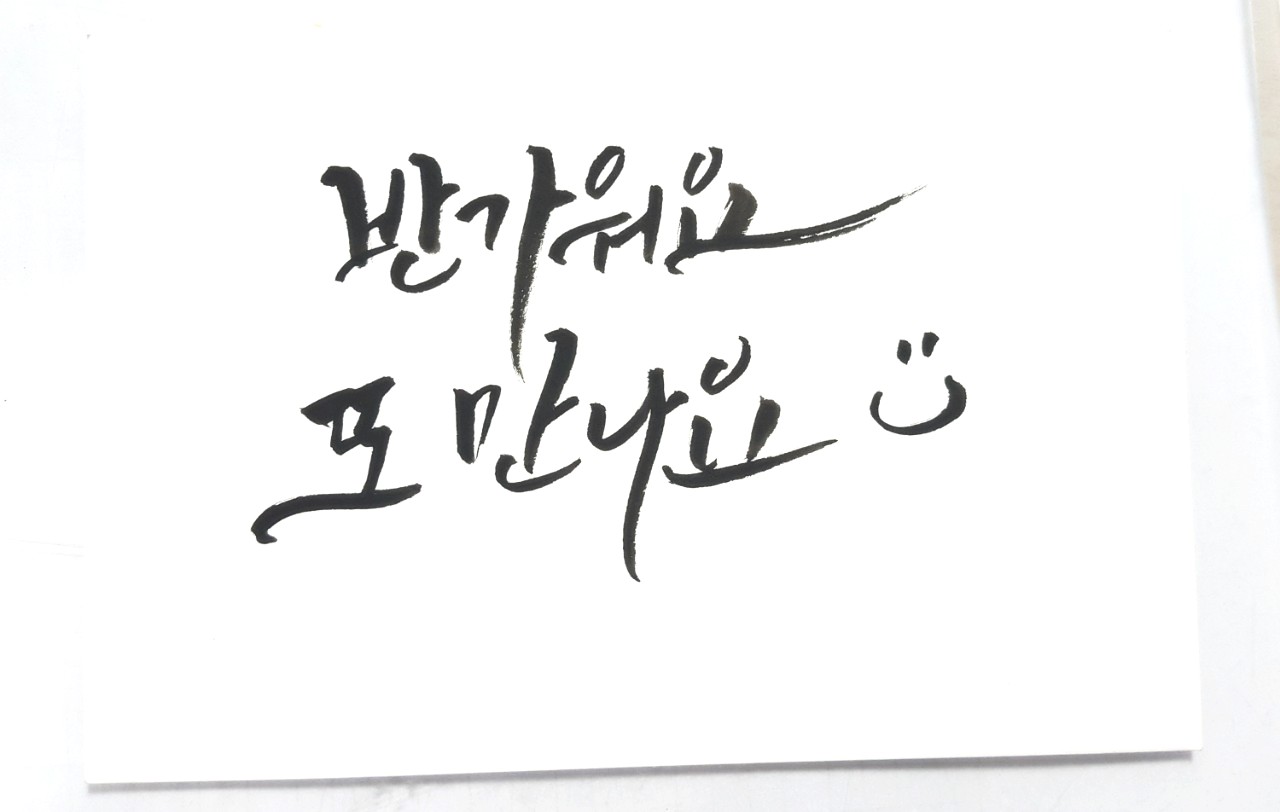 반가워요
또 만나요